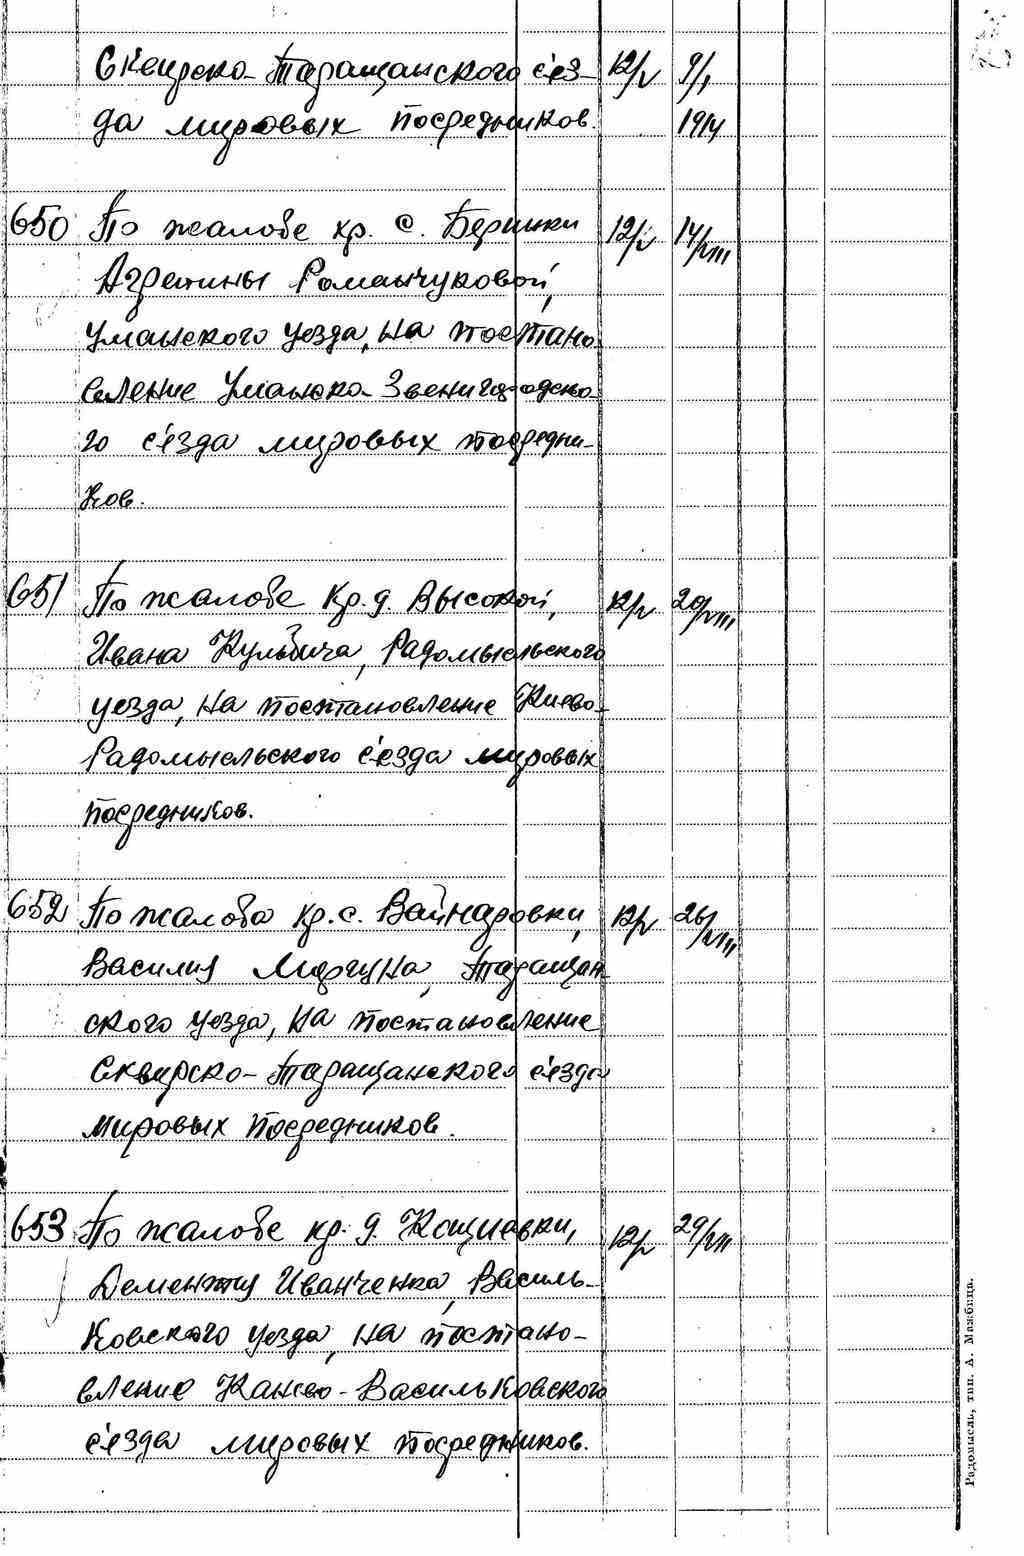 Сквирско-Таращанского с'ез- 12/V 9/I
да мировых посредников. 1914
650 По жалобе кр. с. Берижки 12/V 14/VIII
Агрепины Романчуковой,
Уманского уезда, на постано-
вление Уманско-Звенигородско-
го с'езда мировых посредни-
ков.
651 По жалобе кр. д. Высокой, 12/V 20/VIII
Ивана Кульбича, Радомысльского
уезда, на постановление Киево-
Радомысльского с'езда мировых
посредников.
652 По жалоба кр. с. Вайнаровки, 12/V 26/VIII
Василия Моргуна, Таращан-
ского уезда, на постановление
Сквирско-Таращанского с'езда
мировых посредников.
653 По жалобе кр. д. Кощиевки, 12/V 29/VII
Дементия Иванченка, Василь-
ковского уезда, на постано-
вление Канево-Васильковского
с'езда мировых посредников.
Радомысль, тип. А. Мажбица.